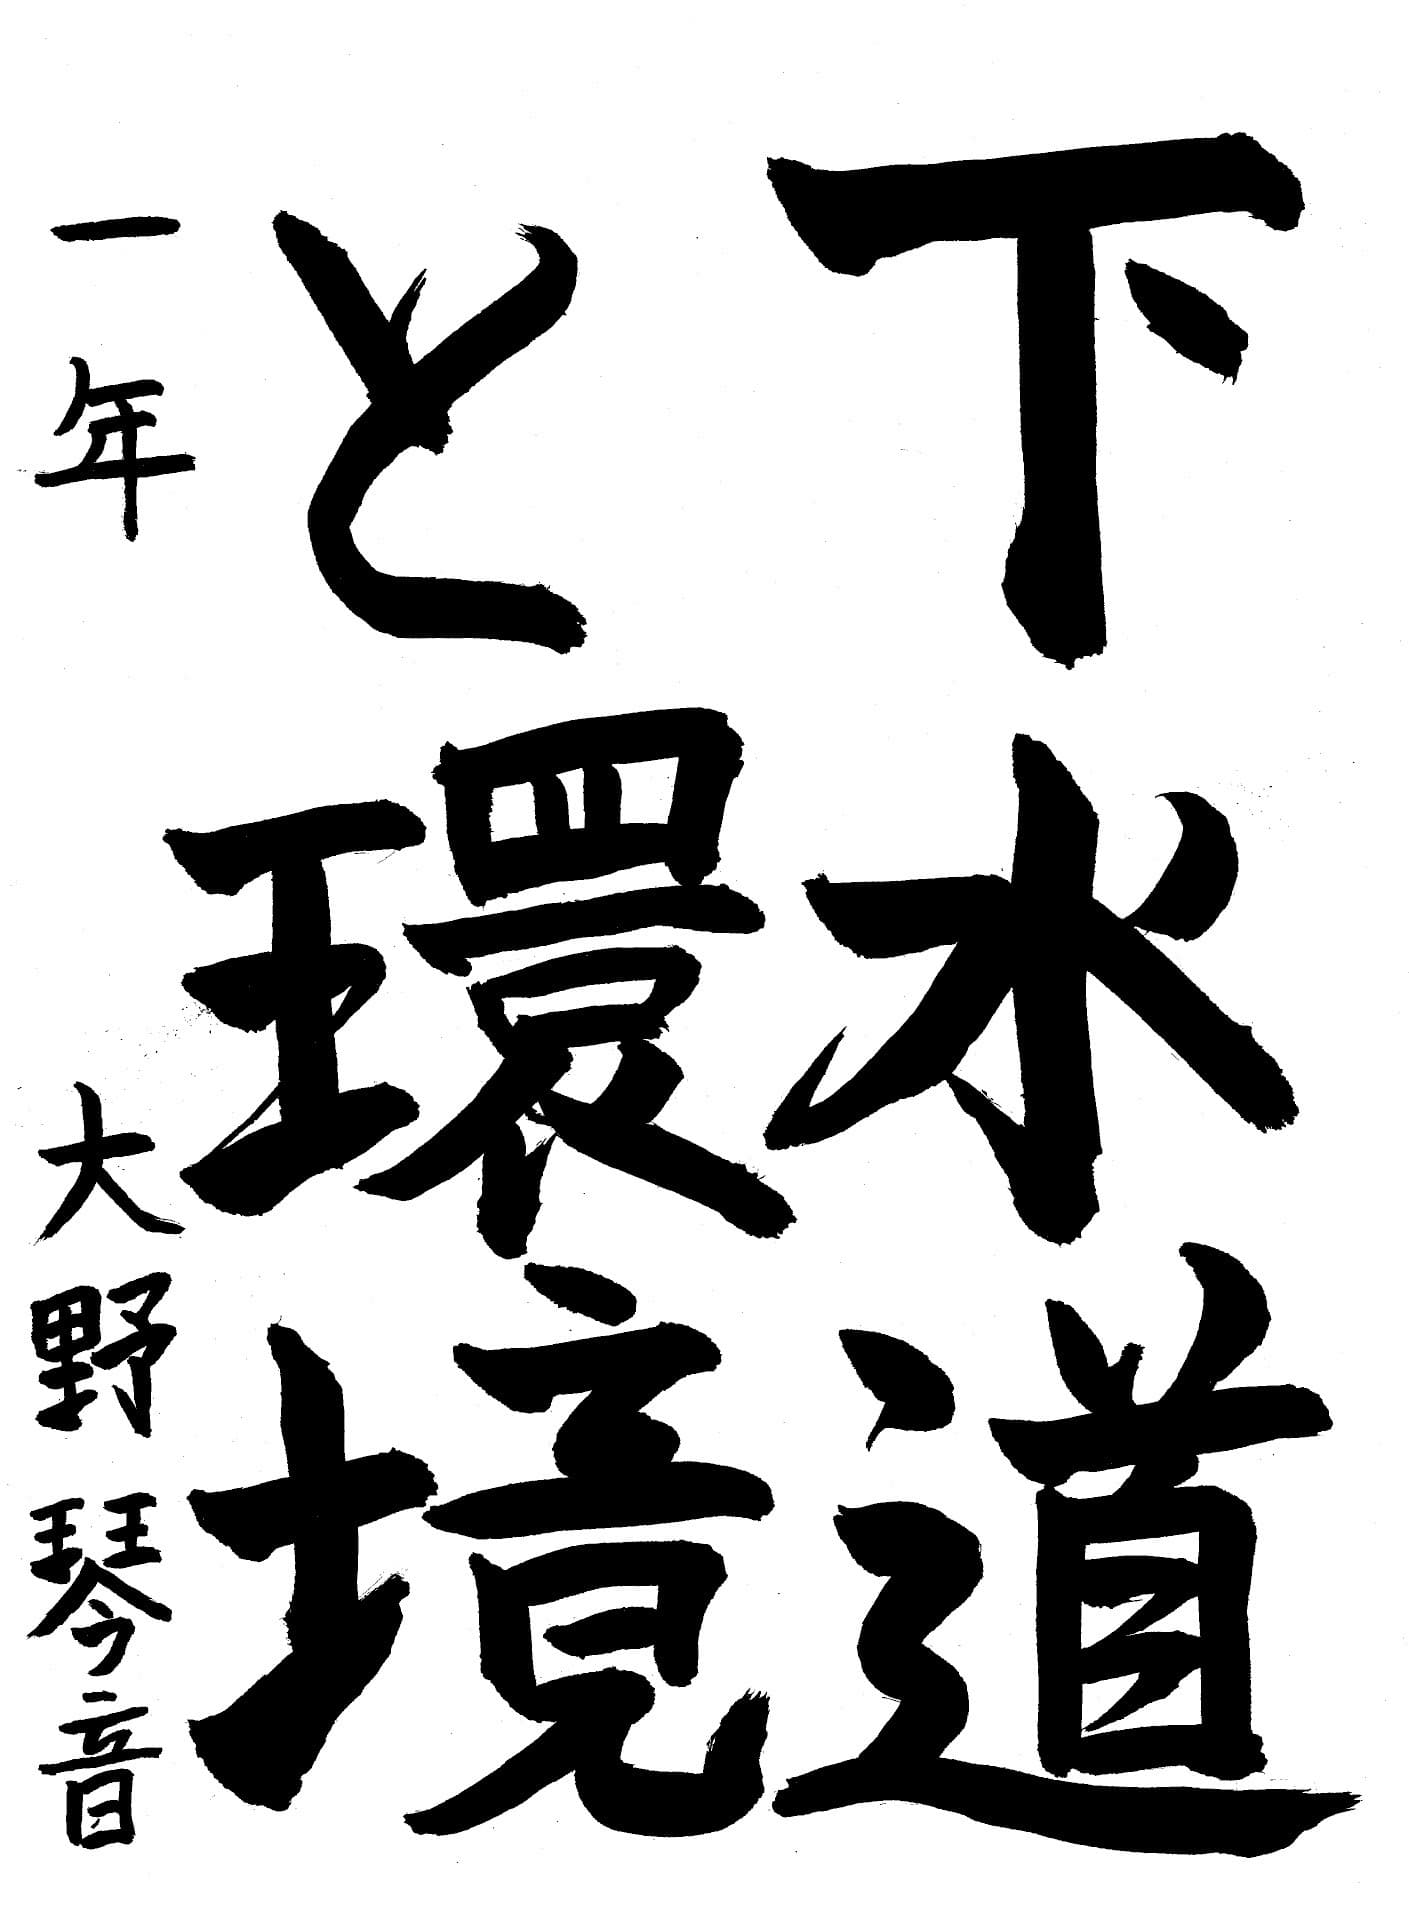 下水道
と環境
一年 大野琴音